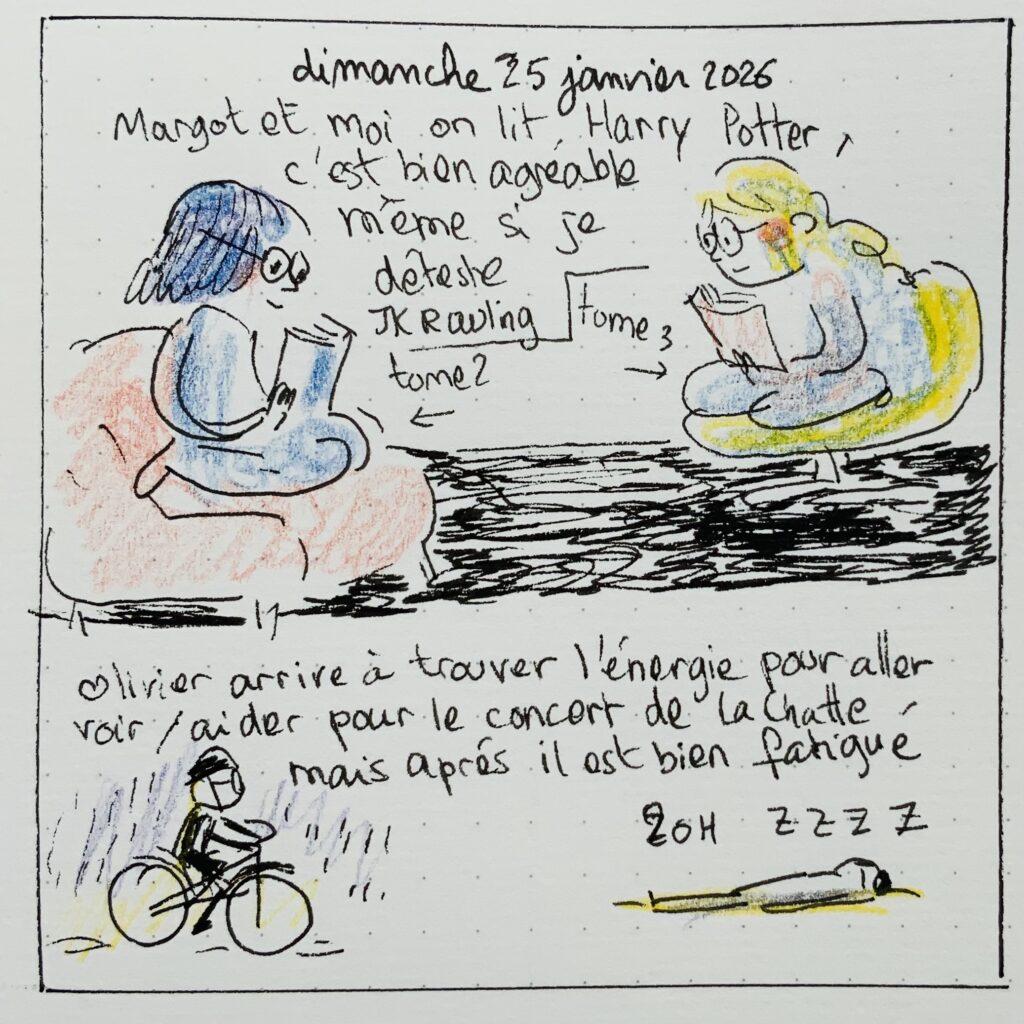 dimanche 25 janvier 2026
Margot et moi on lit Harry Potter,
c'est bien agréable
même si je
déteste
JK Rawling
tome 3
tome 2
Olivier arrive à trouver l'énergie pour aller
voir / aider pour le concert de La Chatte,
mais après il est bien fatigué
20H ZZZZ